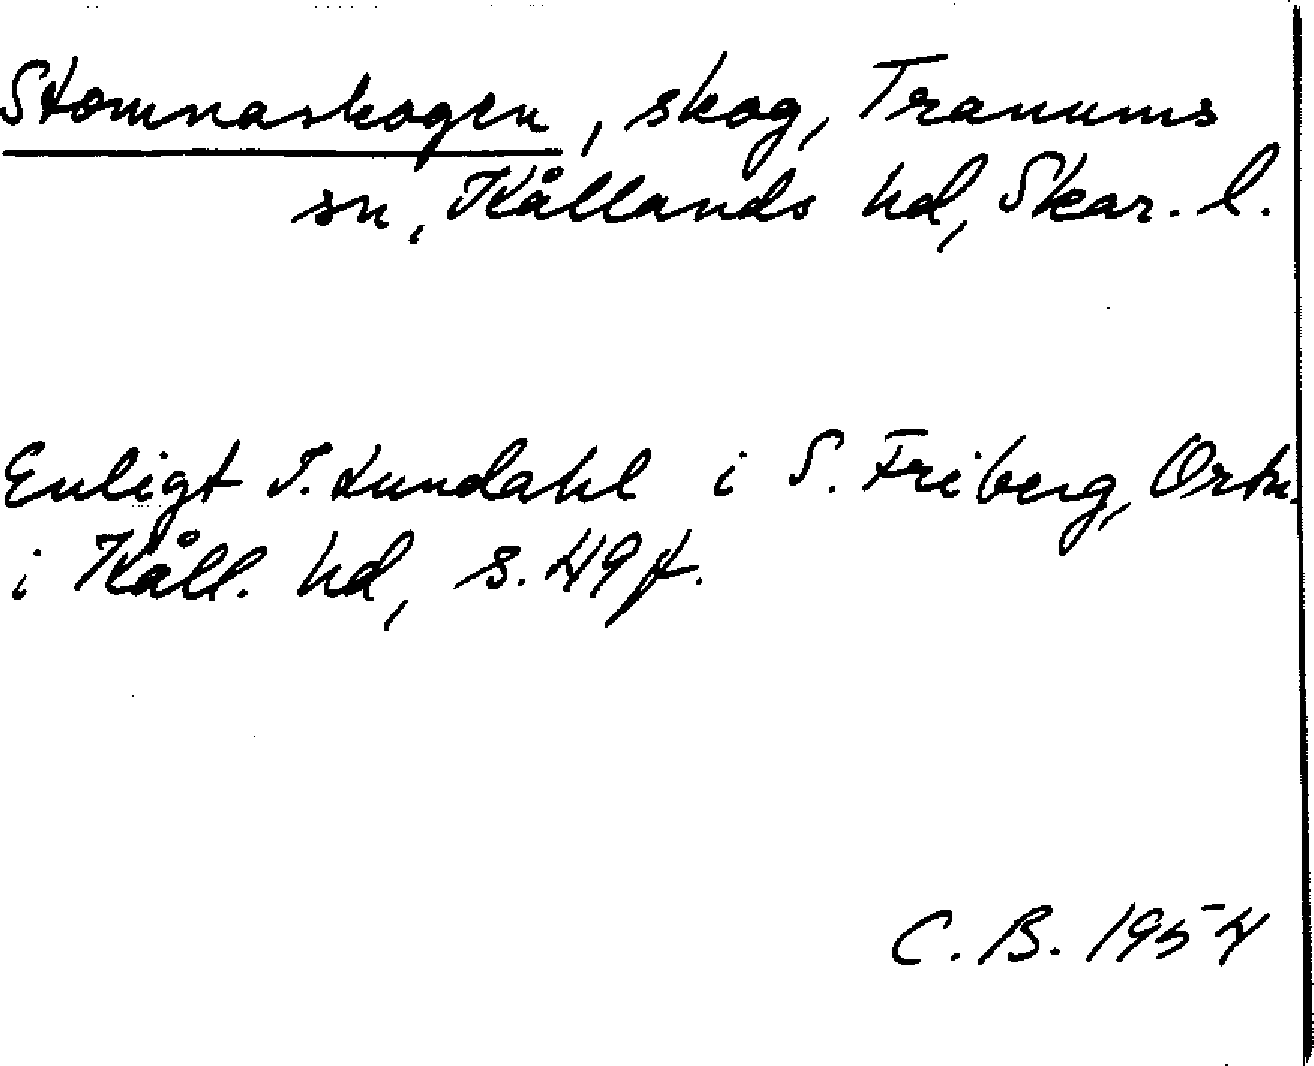 Stomnaskogen, skog, Tranums
sn, Kållands hd, Skar. l.
Enligt I. Lundahl i S. Friberg, Ortn.
i Kåll. hd, s. 49 f.
C. B. 1954